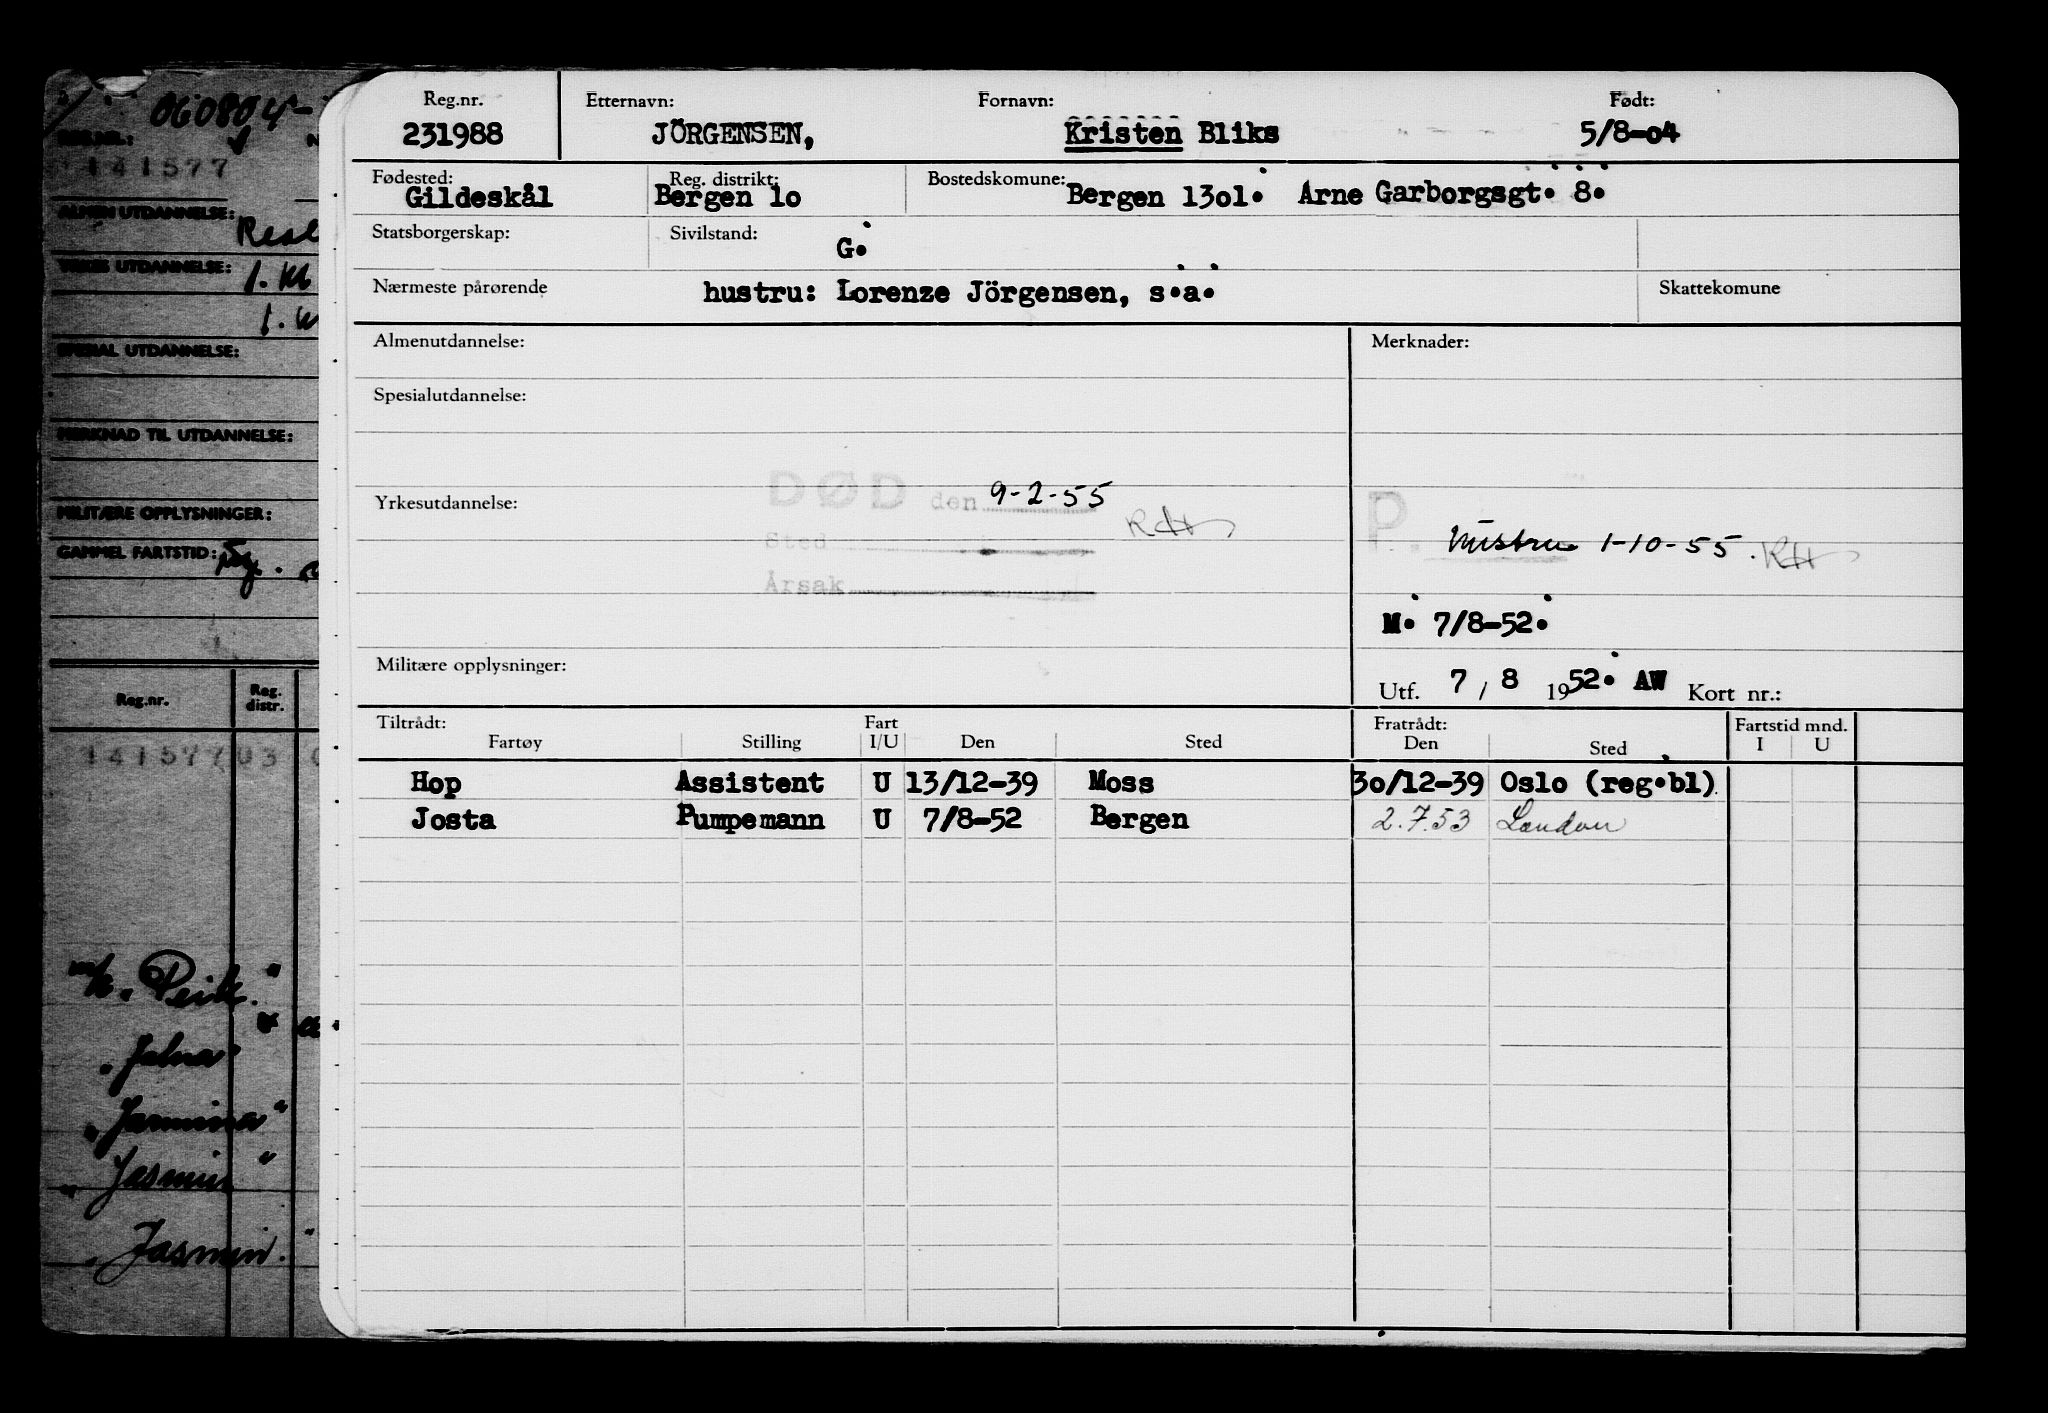 060804-
REG.NR.:
141577
ALMEN UTDANNELSE:
YRKES UTDANNELSE: 1. Kl
SPESIAL UTDANNELSE:
MERKNAD TIL UTDANNELSE:
MILITÆRE OPPLYSNINGER:
GAMMEL FARTSTID:
Reg.nr. Reg. distr.
141577 03
"Jasmin"
"Jasmin."
Reg.nr. Etternavn: Fornavn: Født:
231988 JÖRGENSEN, Kristen Bliks 5/8-o4
Fødested: Reg. distrikt: Bostedskomune:
Gildeskål Bergen lo Bergen 13ol. Arne Garborgsgt. 8.
Statsborgerskap: Sivilstand: G.
Nærmeste pårørende hustru: Lorenze Jörgensen, s.a. Skattekomune
Almenutdannelse: Merknader:
Spesialutdannelse:
Yrkesutdannelse: DØD den 9-2-55
Sted
P. hustru 1-10-55.
Årsak
M. 7/8-52.
Militære opplysninger: Utf. 7 / 8 1952. AW Kort nr.:
Tiltrådt: Fart Fratrådt: Fartstid mnd.
Fartøy Stilling I/U Den Sted Den Sted I U
Hop Assistent U 13/12-39 Moss 3o/12-39 Oslo (reg.bl)
Josta Pumpemann U 7/8-52 Bergen 2.7.53 London